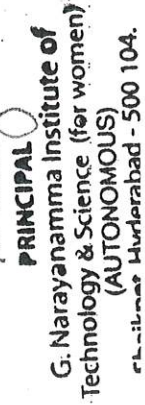 PRINCIPAL
G. Narayanamma Institute of
Technology & Science (for women)
(AUTONOMOUS)
Hyderabad - 500 104.